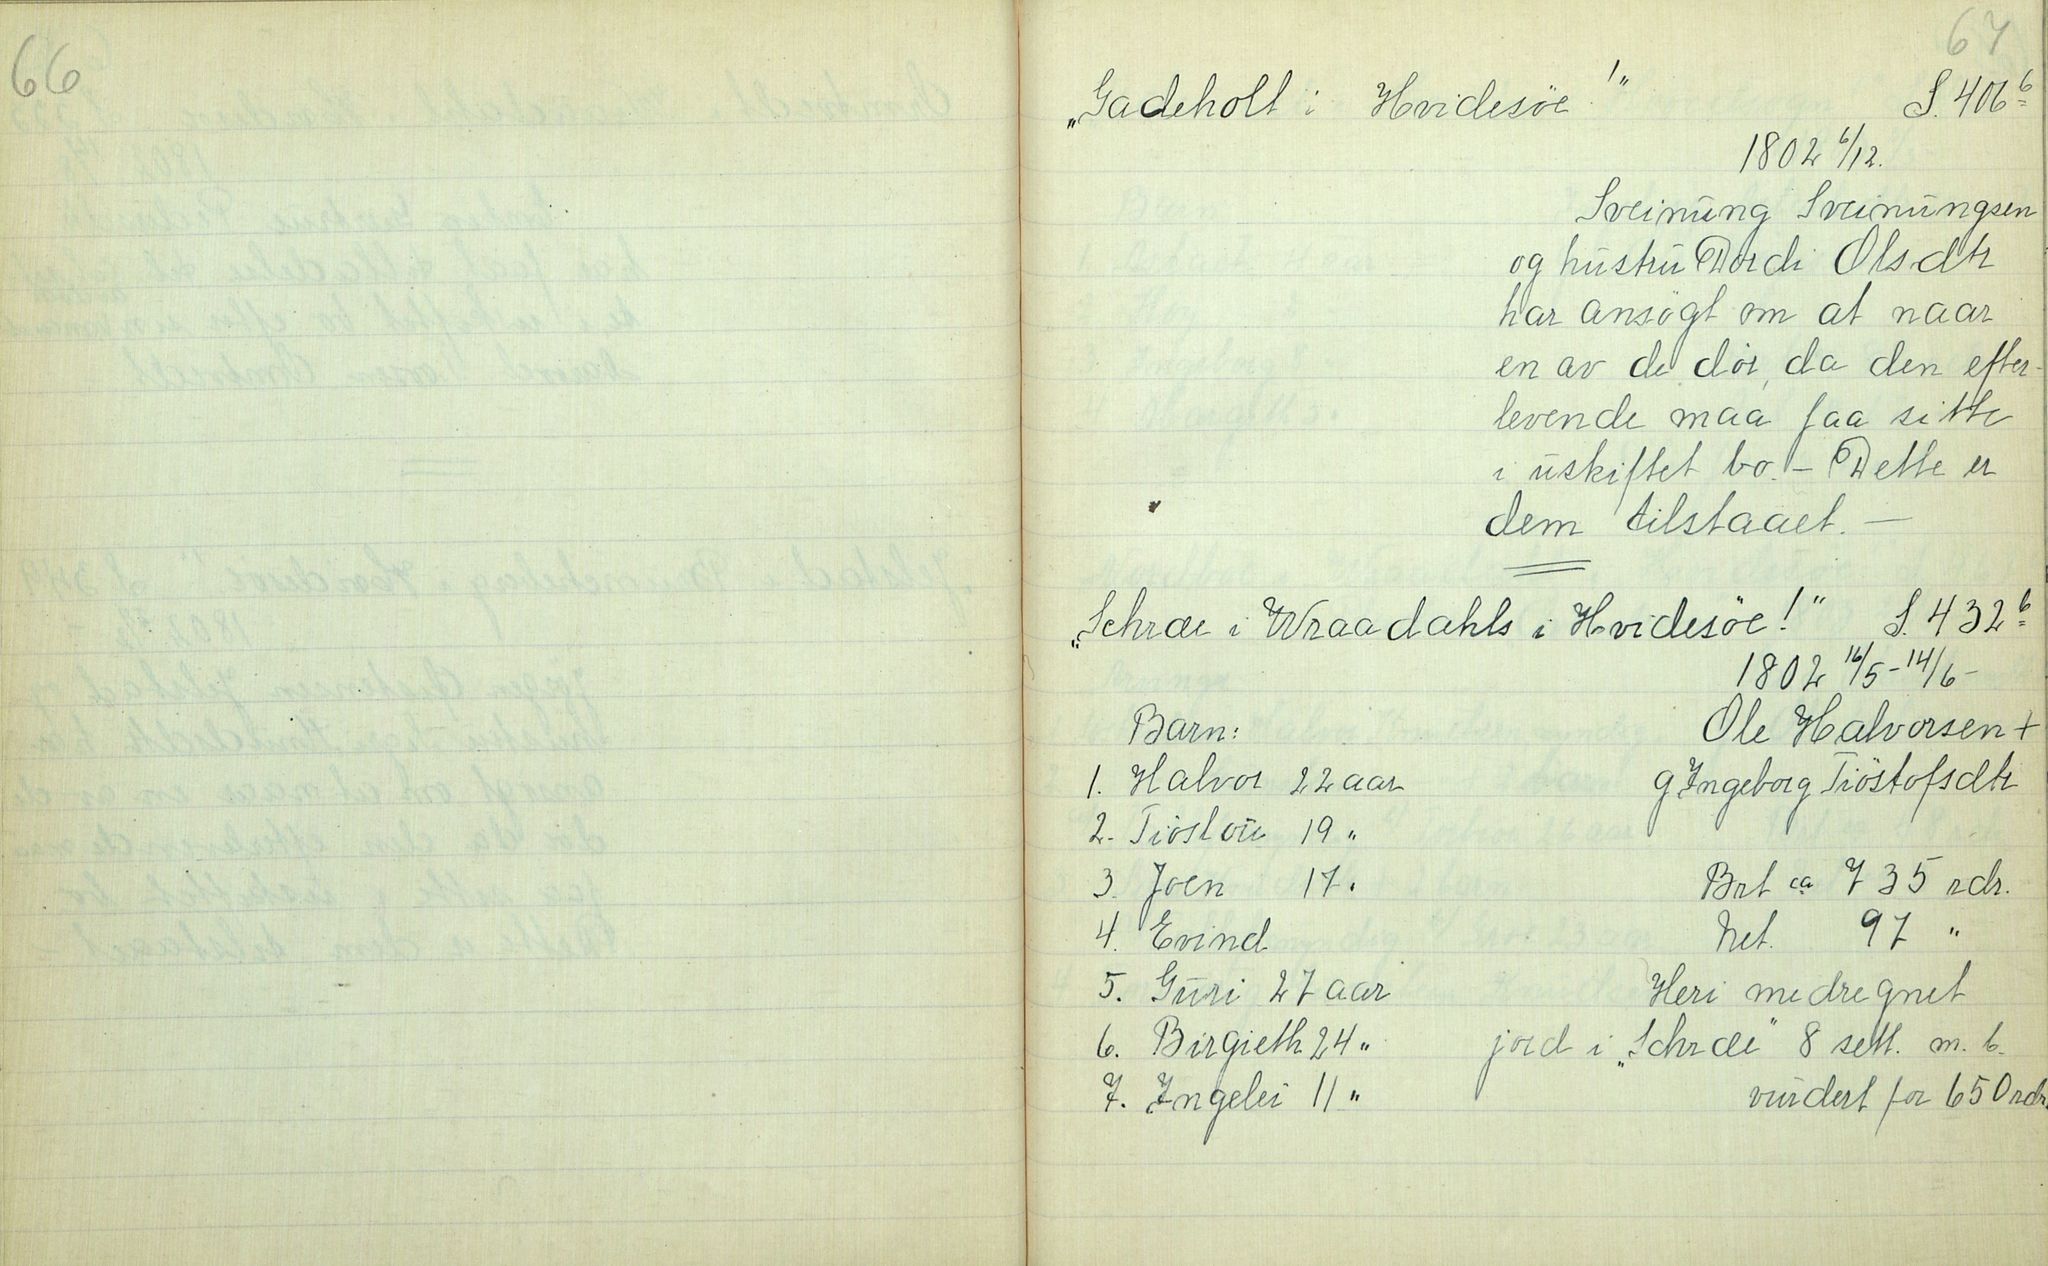 66
67
„Gadeholt i Hvidesöe!" S. 406 b
1802 6/12.
Sveinŭng Sveinŭngsen
og hŭstrŭ Dordi Olsdtr
har ansögt om at naar
en av de dör, da den efter-
levende maa faa sitte
i ŭskiftet bo. – Dette er
dem tilstaaet. —
„Schræe i Wraadahls i Hvidesöe!" S. 432 b
1802 16/5 - 14/6 -
Barn: Ole Halvorsen +
1. Halvor 22 aar g Ingeborg Tiöstofsdtr
2. Tiöstoŭ 19 "
3. Joen 17 " Brt ca 735 rdr.
4. Evind Net. 97 "
5. Gŭri 27 aar Heri medregnet
6. Birgieth 24 " jord i „Schræe" 8 sett. m. b.
7. Ingelei 11 " vŭrdert for 650 rdr.